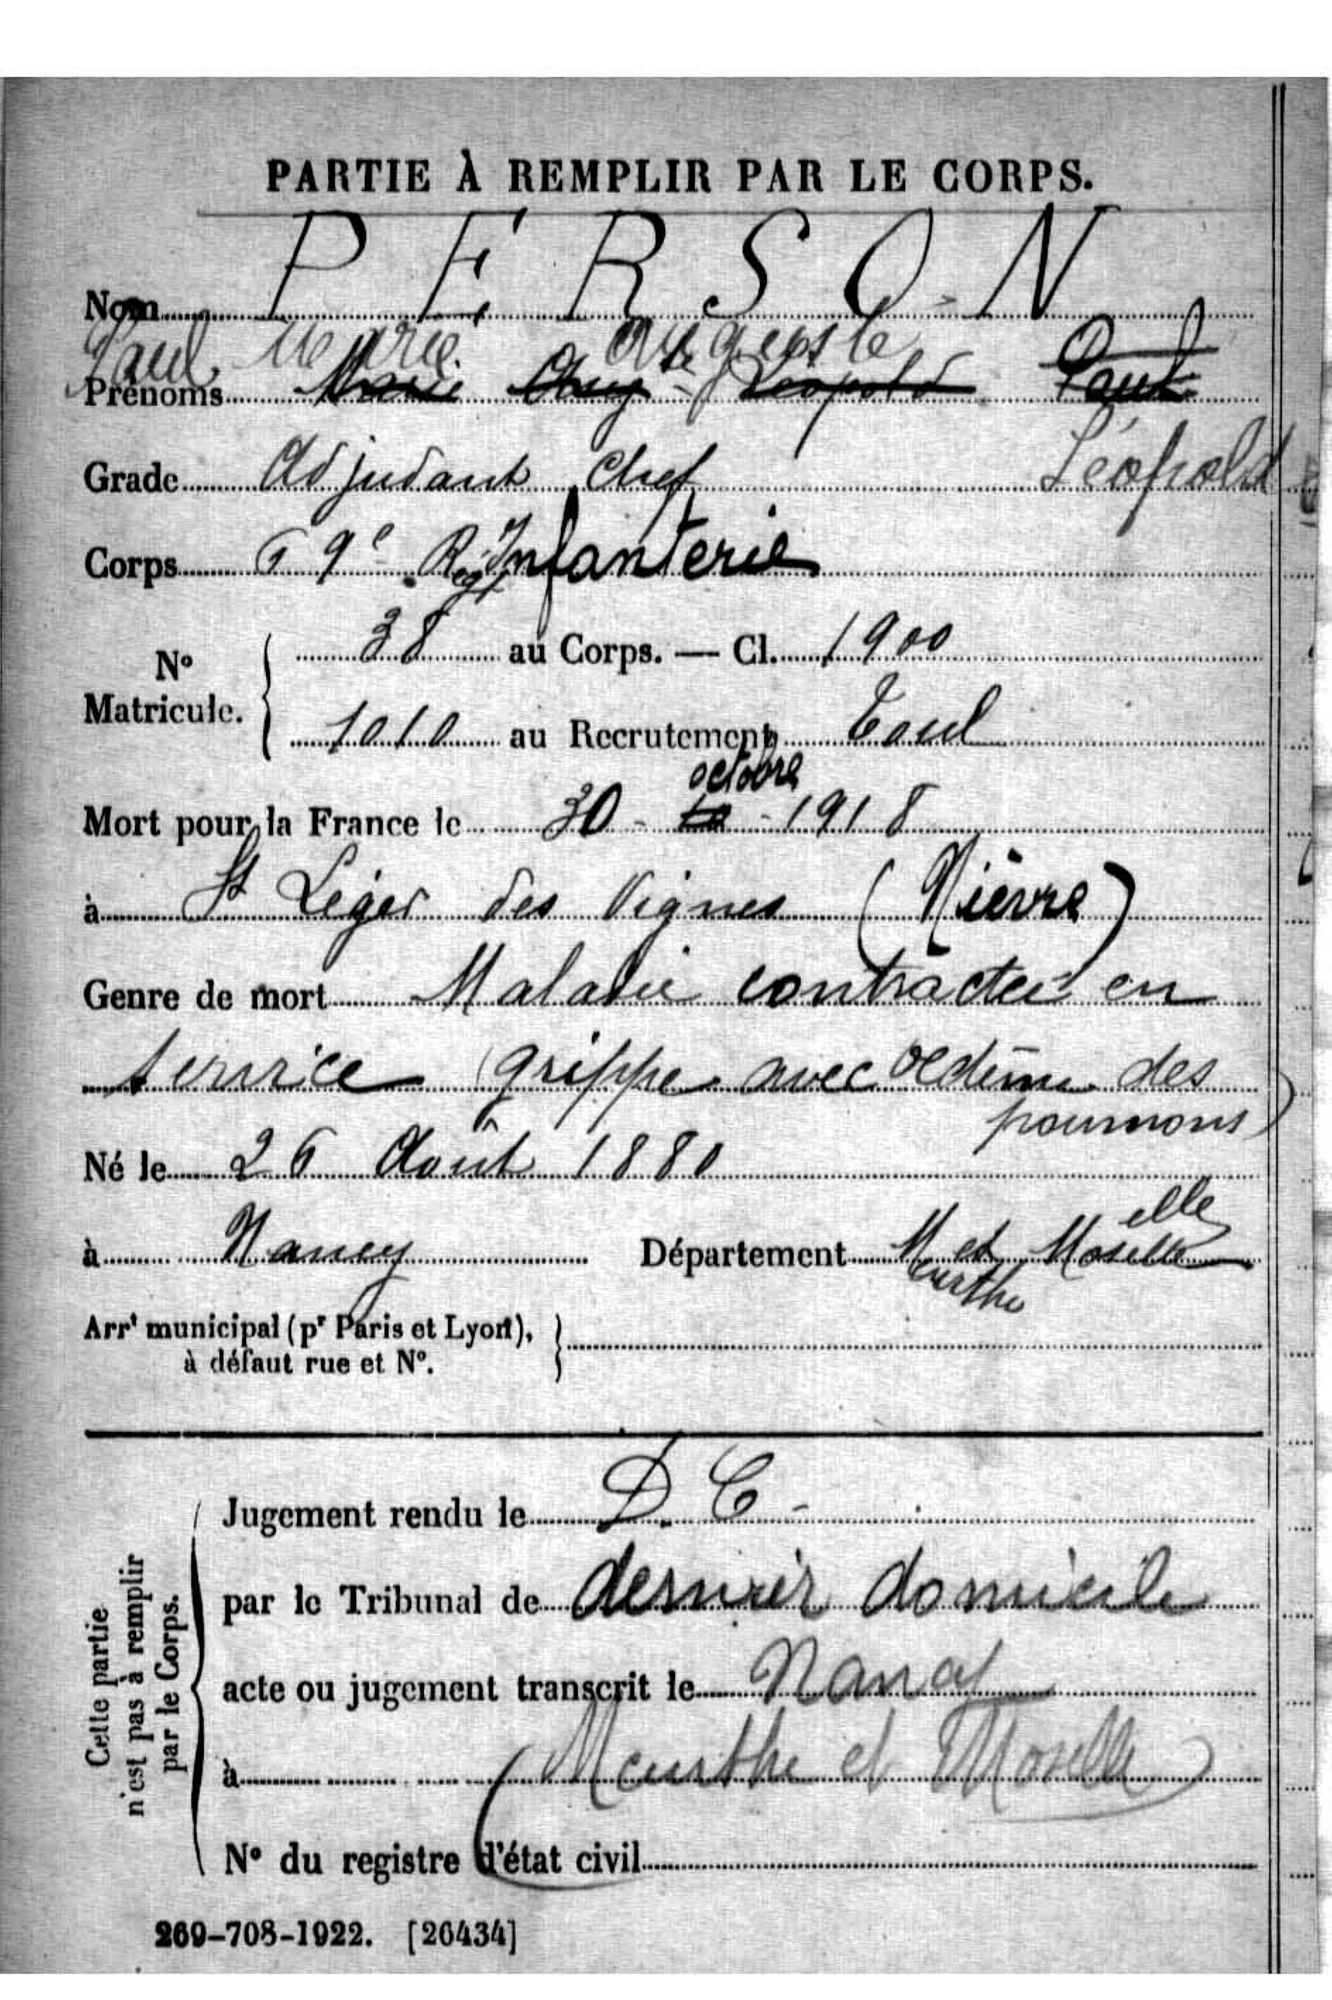 PARTIE À REMPLIR PAR LE CORPS.
Nom PERSON
Paul Marie Auguste
Prénoms Marie Aug te Léopold Paul
Léopold
Grade Adjudant Chef
Corps 69e Regt Infanterie
No Matricule. { 38 au Corps. — Cl. 1900
1010 au Recrutement Toul
octobre
Mort pour la France le 30 - 10 - 1918
à St Léger des Vignes (Nièvre)
Genre de mort Maladie contractée en
service (grippe avec oedème des
poumons)
Né le 26 Août 1880
à Nancy Département M et Moselle
eurthe elle
Arrt municipal (pr Paris et Lyon),
à défaut rue et No. }
Cette partie
n'est pas à remplir
par le Corps.
Jugement rendu le D. C -
par le Tribunal de dernier domicile
acte ou jugement transcrit le Nancy
à (Meurthe et Moselle)
No du registre d'état civil
269-708-1922. [26434]